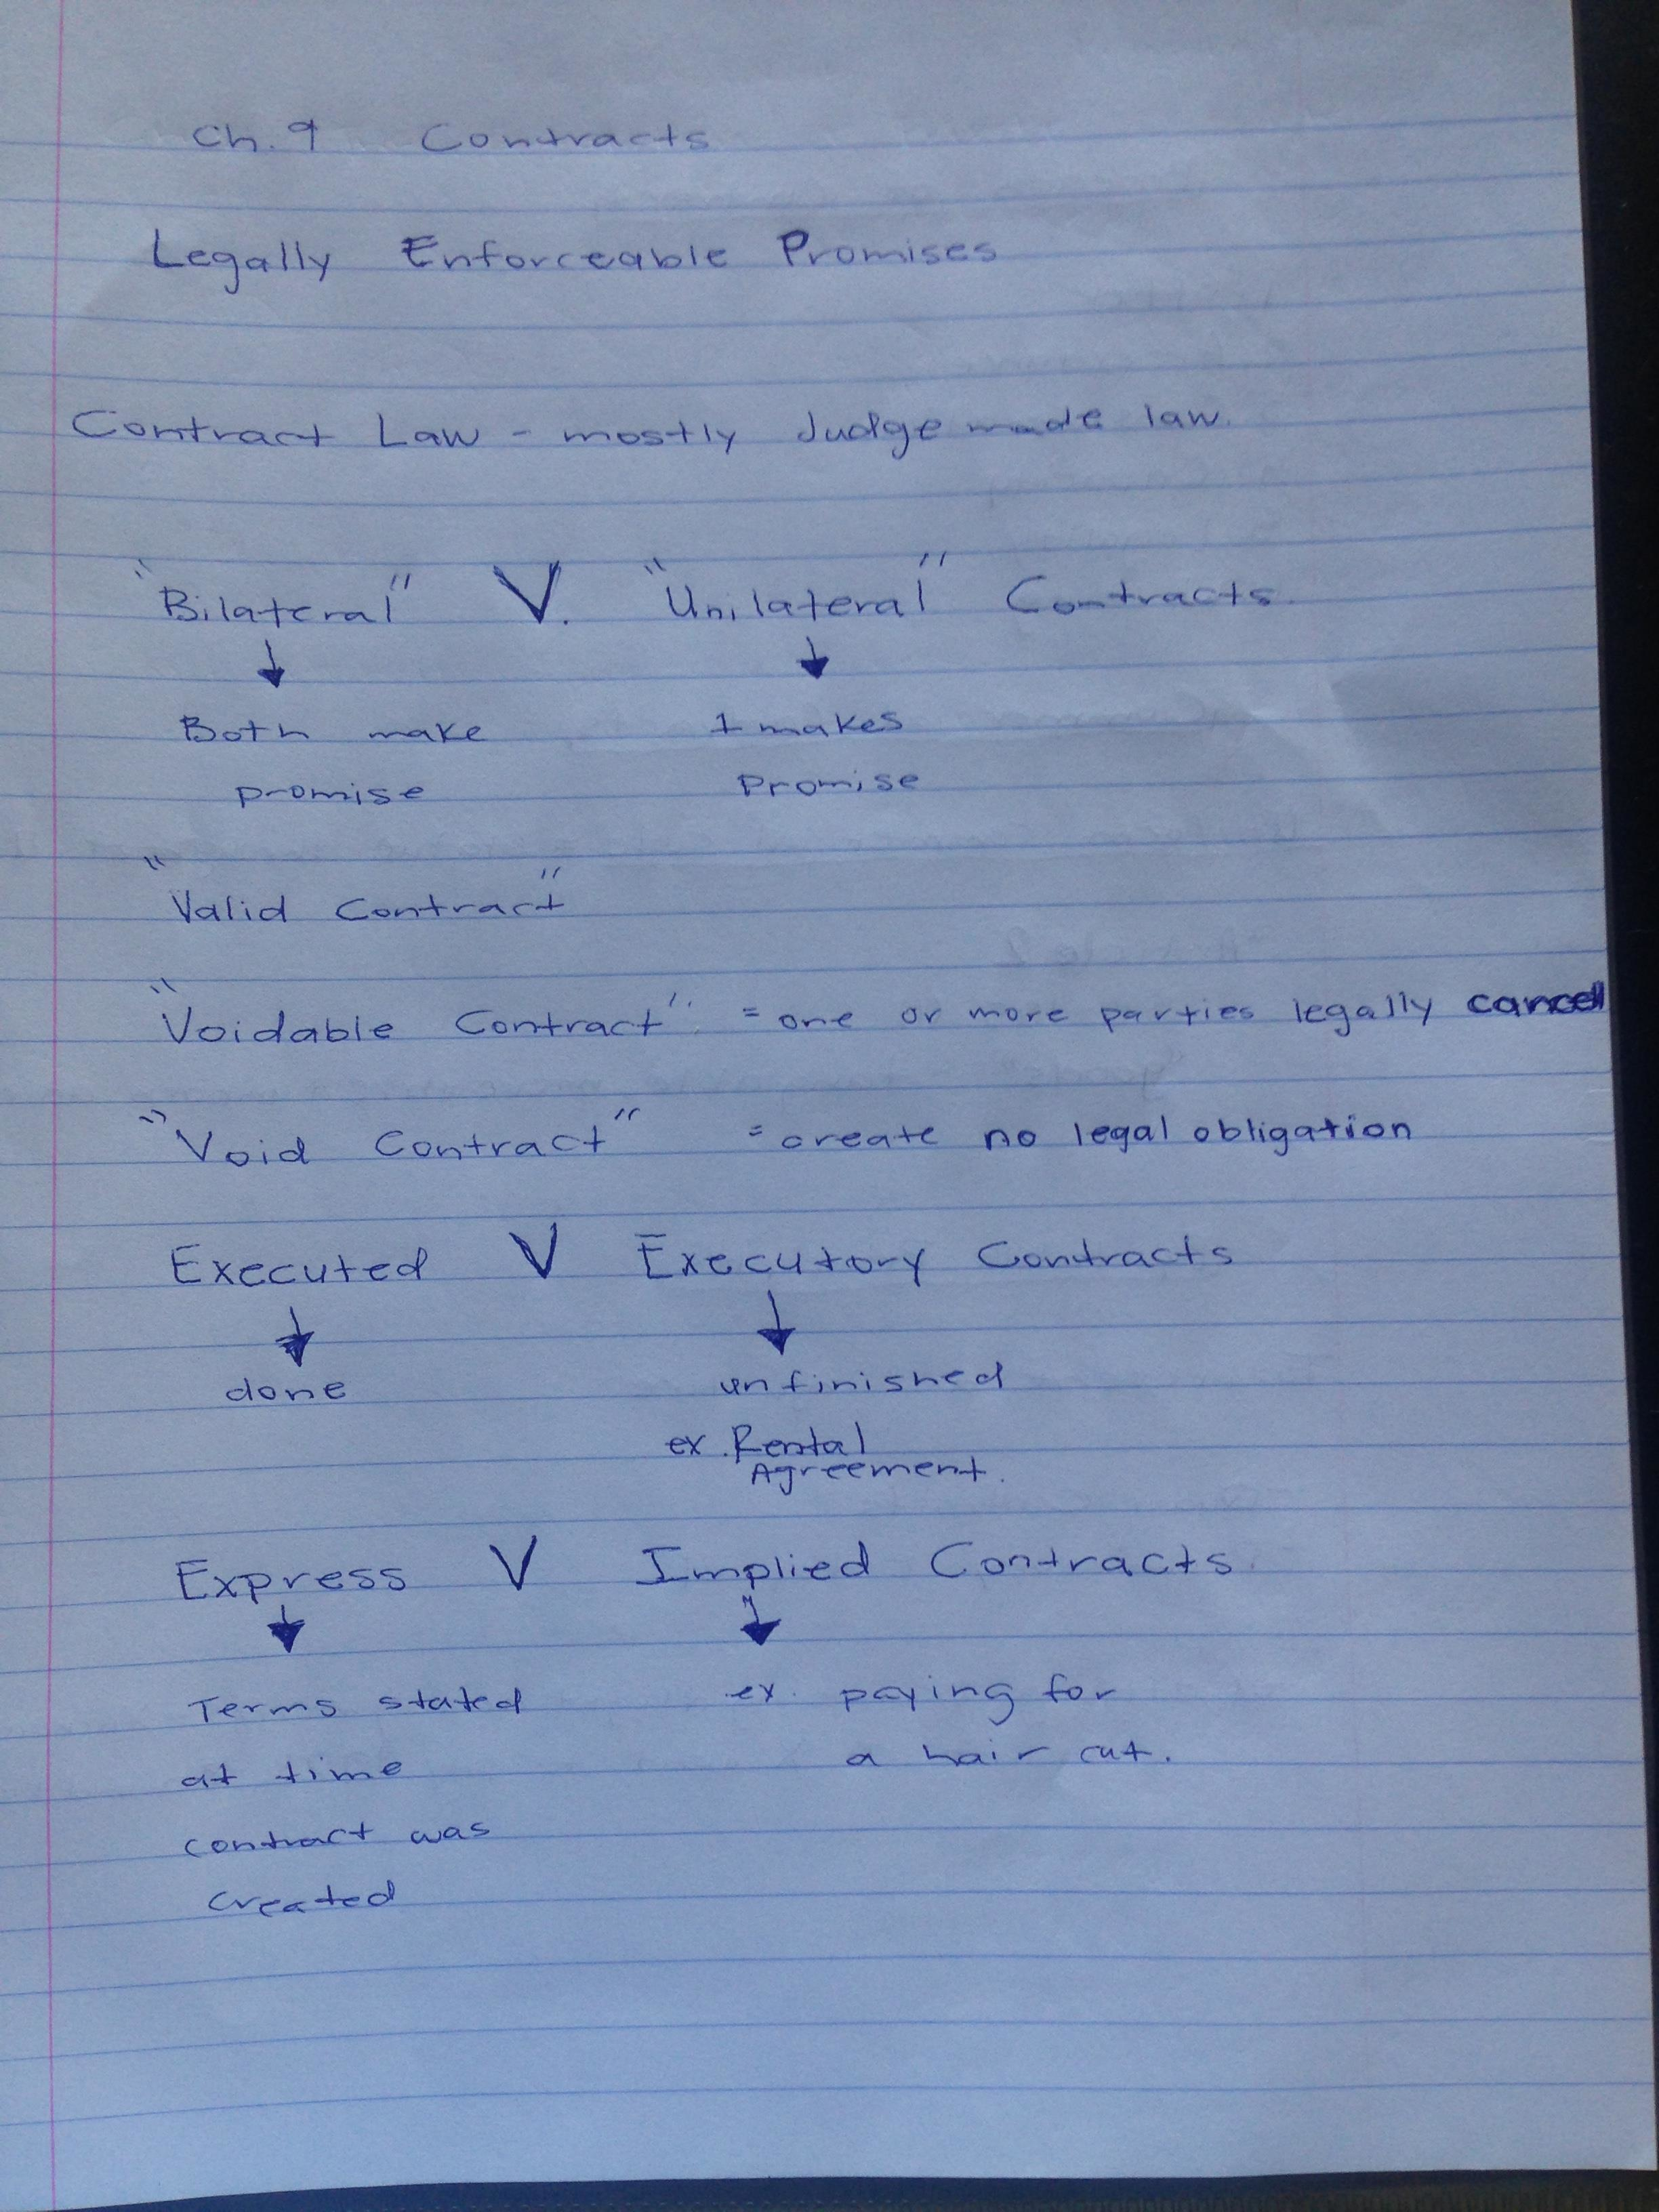 Ch. 9 Contracts
Legally Enforceable Promises
Contract Law - mostly Judge made law.
"Bilateral" V. "Unilateral" Contracts.
Both make 1 makes
promise Promise
"Valid Contract"
"Voidable Contract" = one or more parties legally cancel
"Void Contract" = create no legal obligation
Executed V Executory Contracts
done unfinished
ex. Rental
Agreement.
Express V Implied Contracts.
Terms stated ex. paying for
at time a hair cut.
contract was
created